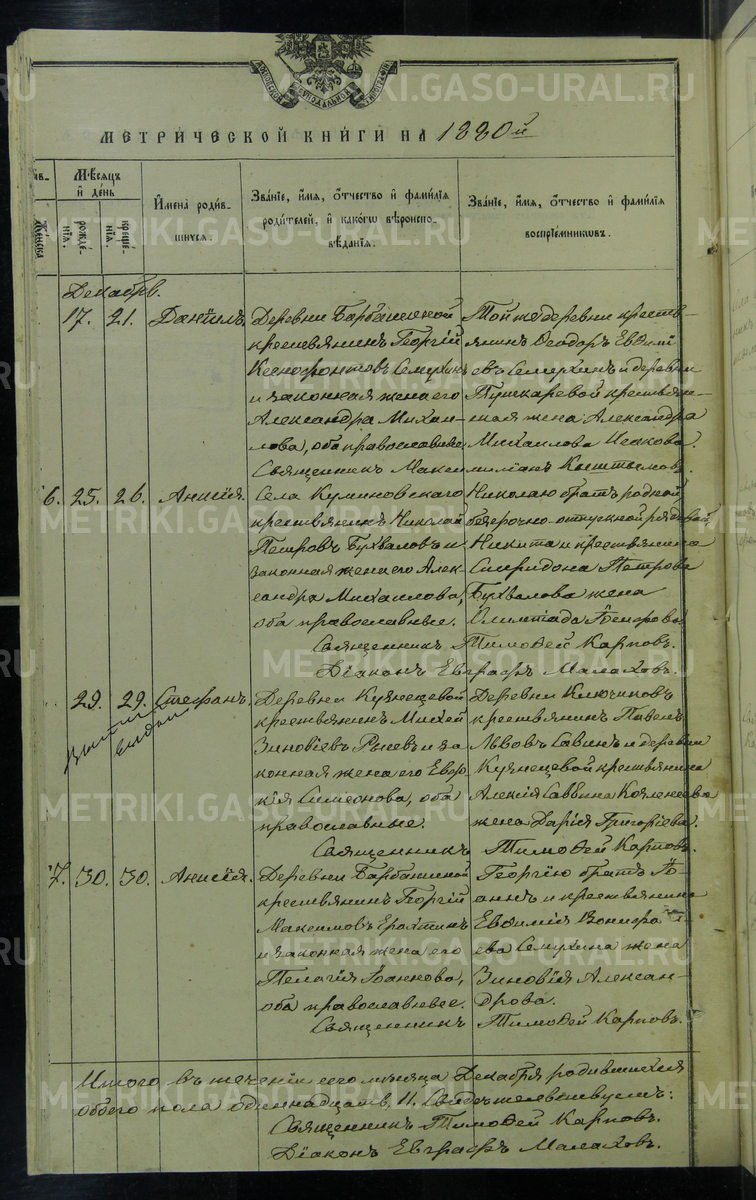 МЕТРИЧЕСКОЙ КНИГИ НА 1880й
Мѣсяцъ и день
Женска
рождéнія.
крещéнія.
Имена родившихся.
Званіе, имя, отчество и фамилія родителей, и какого вѣроисповѣданія.
Званіе, имя, отчество и фамилія воспріемниковъ.
Декабрь.
17. 21. Даніилъ.
Деревни Барбашиной
крестьянинъ Георгій
Ксенофонтовъ Семухинъ
и законная жена его
Александра Михаи-
лова, оба православные.
Той же деревни кресть-
янинъ Ѳеодоръ Евѳимі
евъ Семухинъ и деревни
Пушкаревой крестьян-
ская жена Александра
Михаилова Исакова.
Священникъ Максимиліанъ
6. 25. 26. Анисія.
Села Куликовскаго
крестьянинъ Николай
Петровъ Бухваловъ и
законная жена его Алек
сандра Михаилова,
оба православные.
Николаю братъ родной
безсрочно-отпускной рядовой
Никита и крестьянина
Спиридона Петрова
Бухвалова жена
Олимпіада
Священникъ Тимоѳей Карповъ.
Діаконъ Евграфъ Малаховъ.
29. 29. Стефанъ.
выпись
выдан
Деревни Кузнецовой
крестьянинъ Михей
Зиновіевъ и за
конная жена его Евдо
кія Симеонова, оба
православные.
Деревни Ключиковъ
крестьянинъ Павелъ
Львовъ Савинъ и деревни
Кузнецовой крестьянина
Алексія Саввина
жена Дарія Григоріева.
Священникъ Тимоѳей Карповъ.
7. 30. 30. Анисія.
Деревни Барбашиной
крестьянинъ Георгій
Максимовъ Ерахтинъ
и законная жена его
Пелагія Іоаннова,
оба православные.
Георгію братъ Іо-
аннъ и крестьянина
Евѳимія Вонифатi-
ева Семухина жена
Зиновія Алексан-
дрова.
Священникъ Тимоѳей Карповъ.
Итого въ теченіи сего мѣсяца Декабря родившихся
обоего пола одиннадцать, 11. Свидѣтельствуемъ:
Священникъ Тимоѳей Карповъ.
Діаконъ Евграфъ Малаховъ.
METRIKI.GASO-URAL.RU